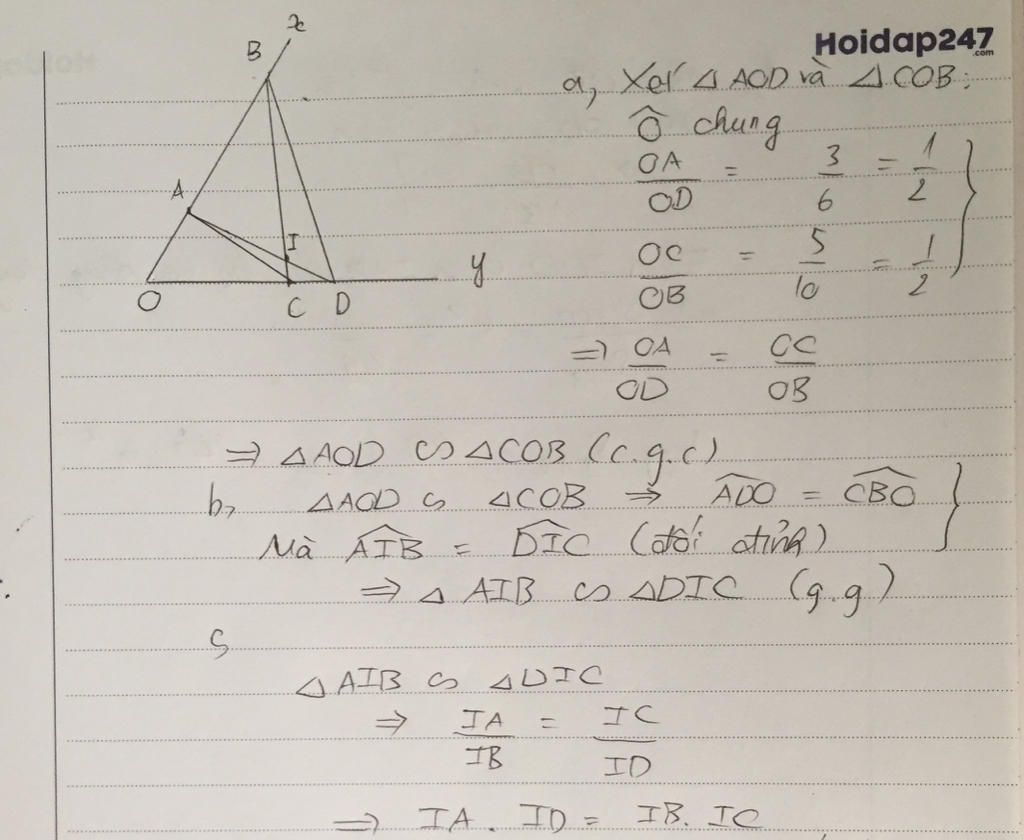 Hoidap247
.com
x
B
A
I
O
C
D
y
a, Xét △ AOD và △ COB:
Ô chung
OA/OD = 3/6 = 1/2 }
OC/OB = 5/10 = 1/2
=> OA/OD = OC/OB
=> △AOD ∽ △COB (c.g.c)
b, △AOD ∽ △COB => ADO = CBO }
Mà AIB = DIC (đối đỉnh)
=> △ AIB ∽ △DIC (g.g)
c
△ AIB ∽ △DIC
=> IA/IB = IC/ID
=> IA . ID = IB. IC